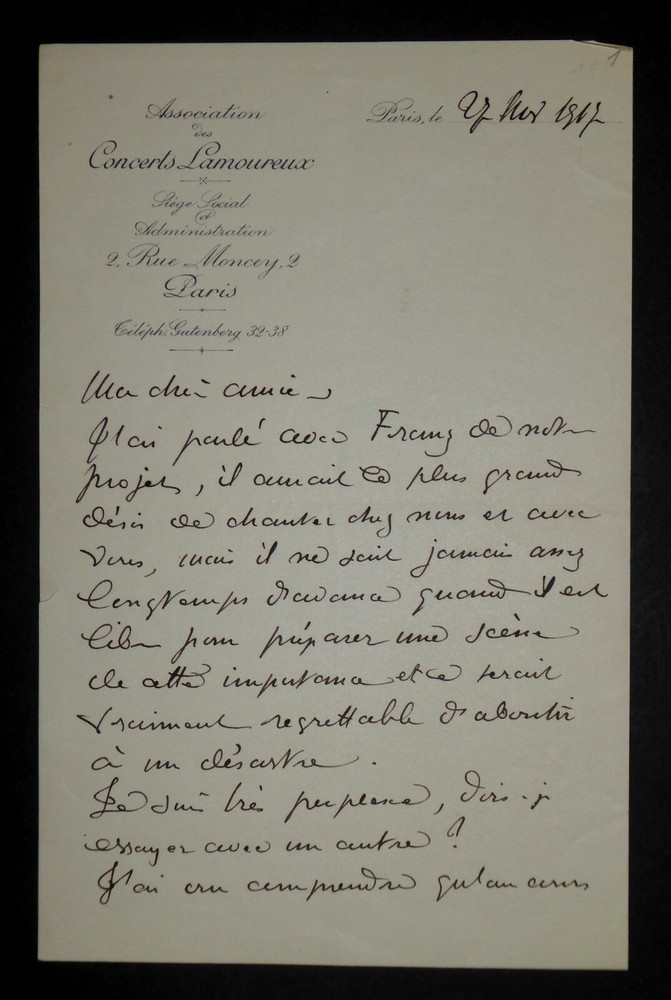 1
Association
des
Concerts Lamoureux
Siège Social
et
Administration
2, Rue Moncey, 2
Paris
Téléph. Gutenberg 32-38
Paris, le 27 Nov 1917
Ma chère amie
J'ai parlé avec Franz de notre
projet, il aurait le plus grand
désir de chanter chez nous et avec
vous, mais il ne sait jamais assez
longtemps d'avance quand il est
libre pour préparer une scène
de cette importance et ce serait
vraiment regrettable d'aboutir
à un désastre.
Je suis très perplexe, dois-je
essayer avec un autre ?
J'ai cru comprendre qu'au cours